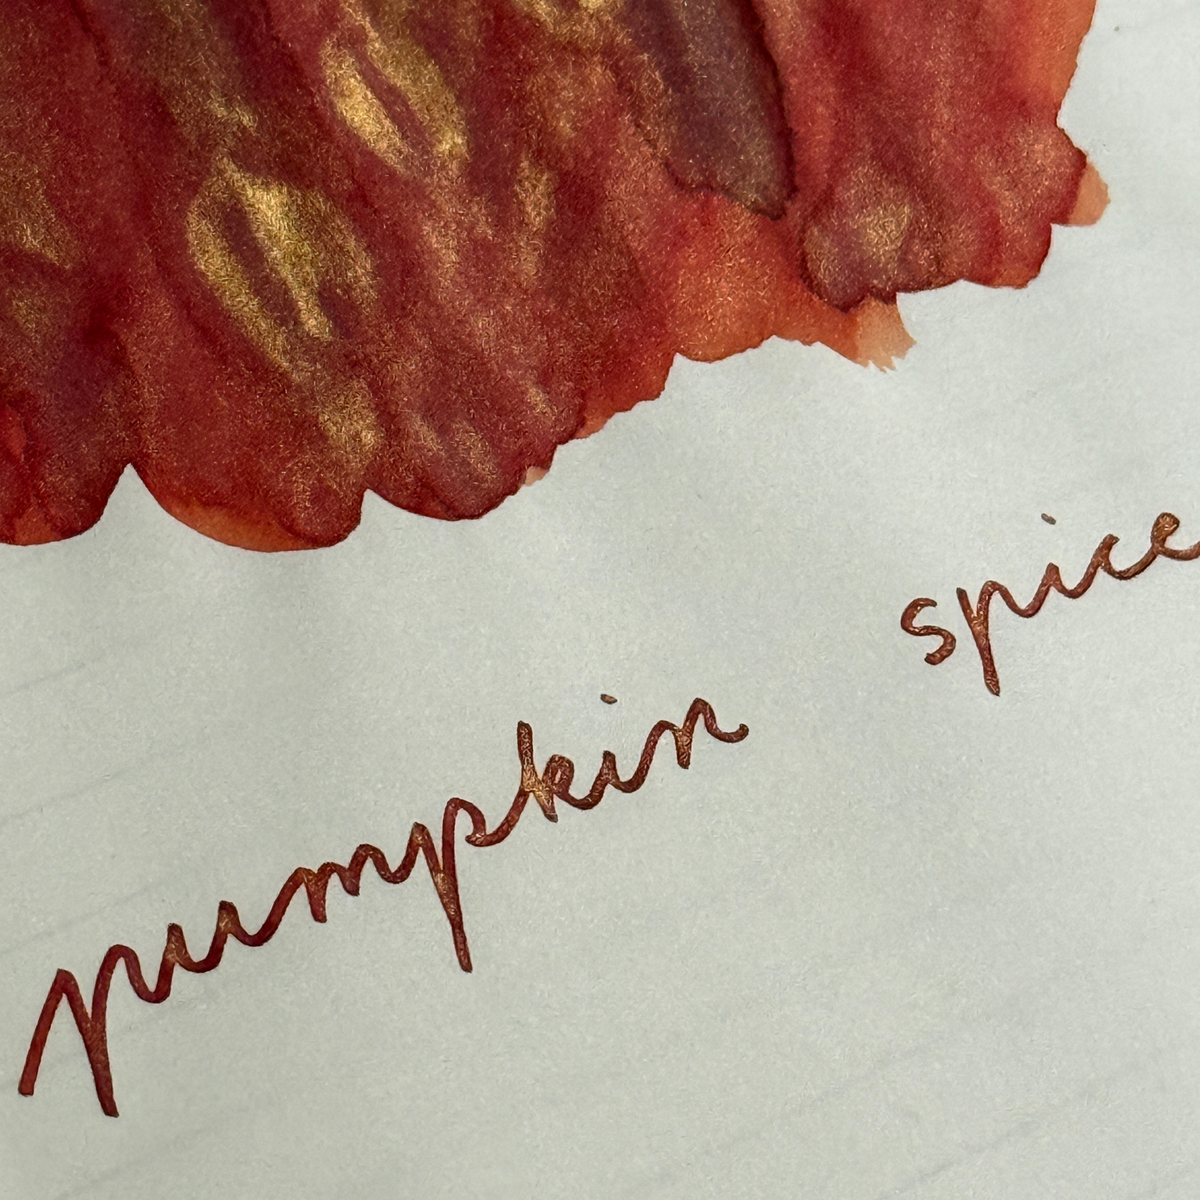 pumpkin spice